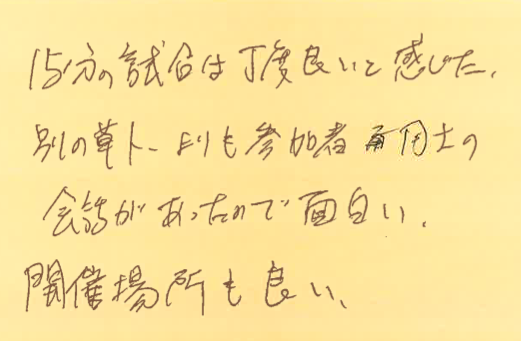 15分の試合は丁度良いと感じた。
別の草トーよりも参加者同士の
会話があったので面白い。
開催場所も良い、